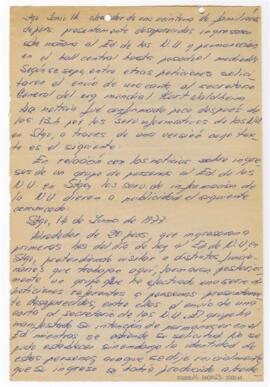 Stgo Junio 14. alrededor de una veintena de familiares
de pers. presuntamente desaparecidas ingresaron
esta mañana al Ed de las N.U y permanecían
en el hall central hasta pasado el mediodía
Según se supo, entre otras peticiones solici-
taron el envío de una carta al secretario
General del org. mundial Kurt Waldheim.
La noticia fue confirmada poco después de
las 13 h por los serv informativos de las NU
en Stgo, a través de una versión cuyo tex-
to es el siguiente:
En relación con las noticias sobre ingre-
sos de un grupo de personas al Ed de las
N.U. en Stgo, los serv de información de
la NU dieron a publicidad el siguiente
comunicado:
Stgo, 14 de Junio de 1977
Alrededor de 20 pers, que ingresaron a
primeras hrs del día de hoy al Ed de N.U. en
Stgo, pretendiendo visitar a distintos funcio-
narios que trabajan aquí, formaron posterior-
mente un grupo que ha efectuado una serie de
peticiones referentes a personas presuntamen-
te desaparecidas, entre ellas el envío de una
carta al secretario de las N.U. El grupo ha
manifestado su intención de permanecer en el
Ed mientras se atiende su solicitud. No se
pudo establecer
de estas personas aunque se dijo inicialmente
que su ingreso se había producido